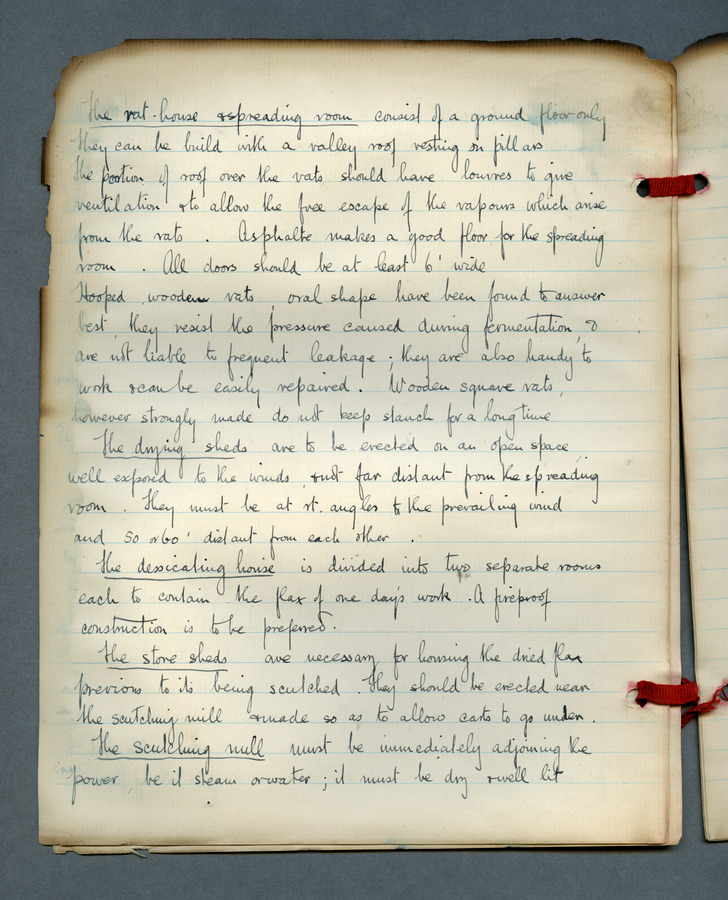 The vat-house & spreading room consist of a ground floor only
they can be build with a valley roof resting on pillars
The portion of roof over the vats should have louvres to give
ventilation & to allow the free escape of the vapours which arise
from the vats . Asphalte makes a good floor for the spreading
room . All doors should be at least 6' wide
Hooped wooden vats, oral shape have been found to answer
best, they resist the pressure caused during fermentation, &
are not liable to frequent leakage ; they are also handy to
work & can be easily repaired . Wooden square vats,
however strongly made do not keep stanch for a long time
The drying sheds are to be erected on an open space,
well exposed to the winds, & not far distant from the spreading
room . They must be at rt. angles to the prevailing wind
and 50 or 60' distant from each other .
The dessicating house is divided into two separate rooms
each to contain the flax of one day's work . A fireproof
construction is to be preferred .
The store sheds are necessary for housing the dried flax
previous to its being scutched . They should be erected near
the scutching mill & made so as to allow carts to go under .
The scutching mill must be immediately adjoining the
power, be it steam or water ; it must be dry & well lit